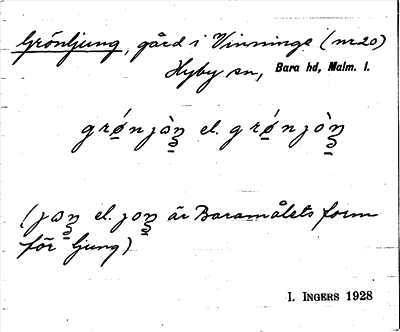 Grönljung, gård i Vinninge (nr 20)
Hyby sn, Bara hd, Malm. l.
grǿnjòŋ el. grǿnjòŋ
(jɷŋ el. joŋ är Baramålets form
för ljung)
I. INGERS 1928